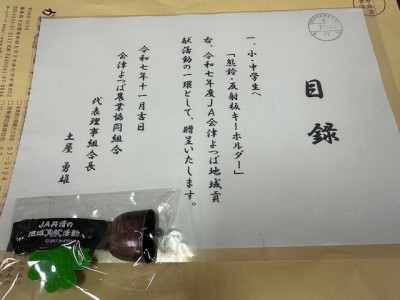 目録
一、小・中学生へ
「熊鈴・反射板キーホルダー」
右、令和七年度JA会津よつば地域貢
献活動の一環として、贈呈いたします。
令和七年十一月吉日
会津よつば農業協同組合
代表理事組合長
土屋 勇雄
JA共済の
地域貢献活動